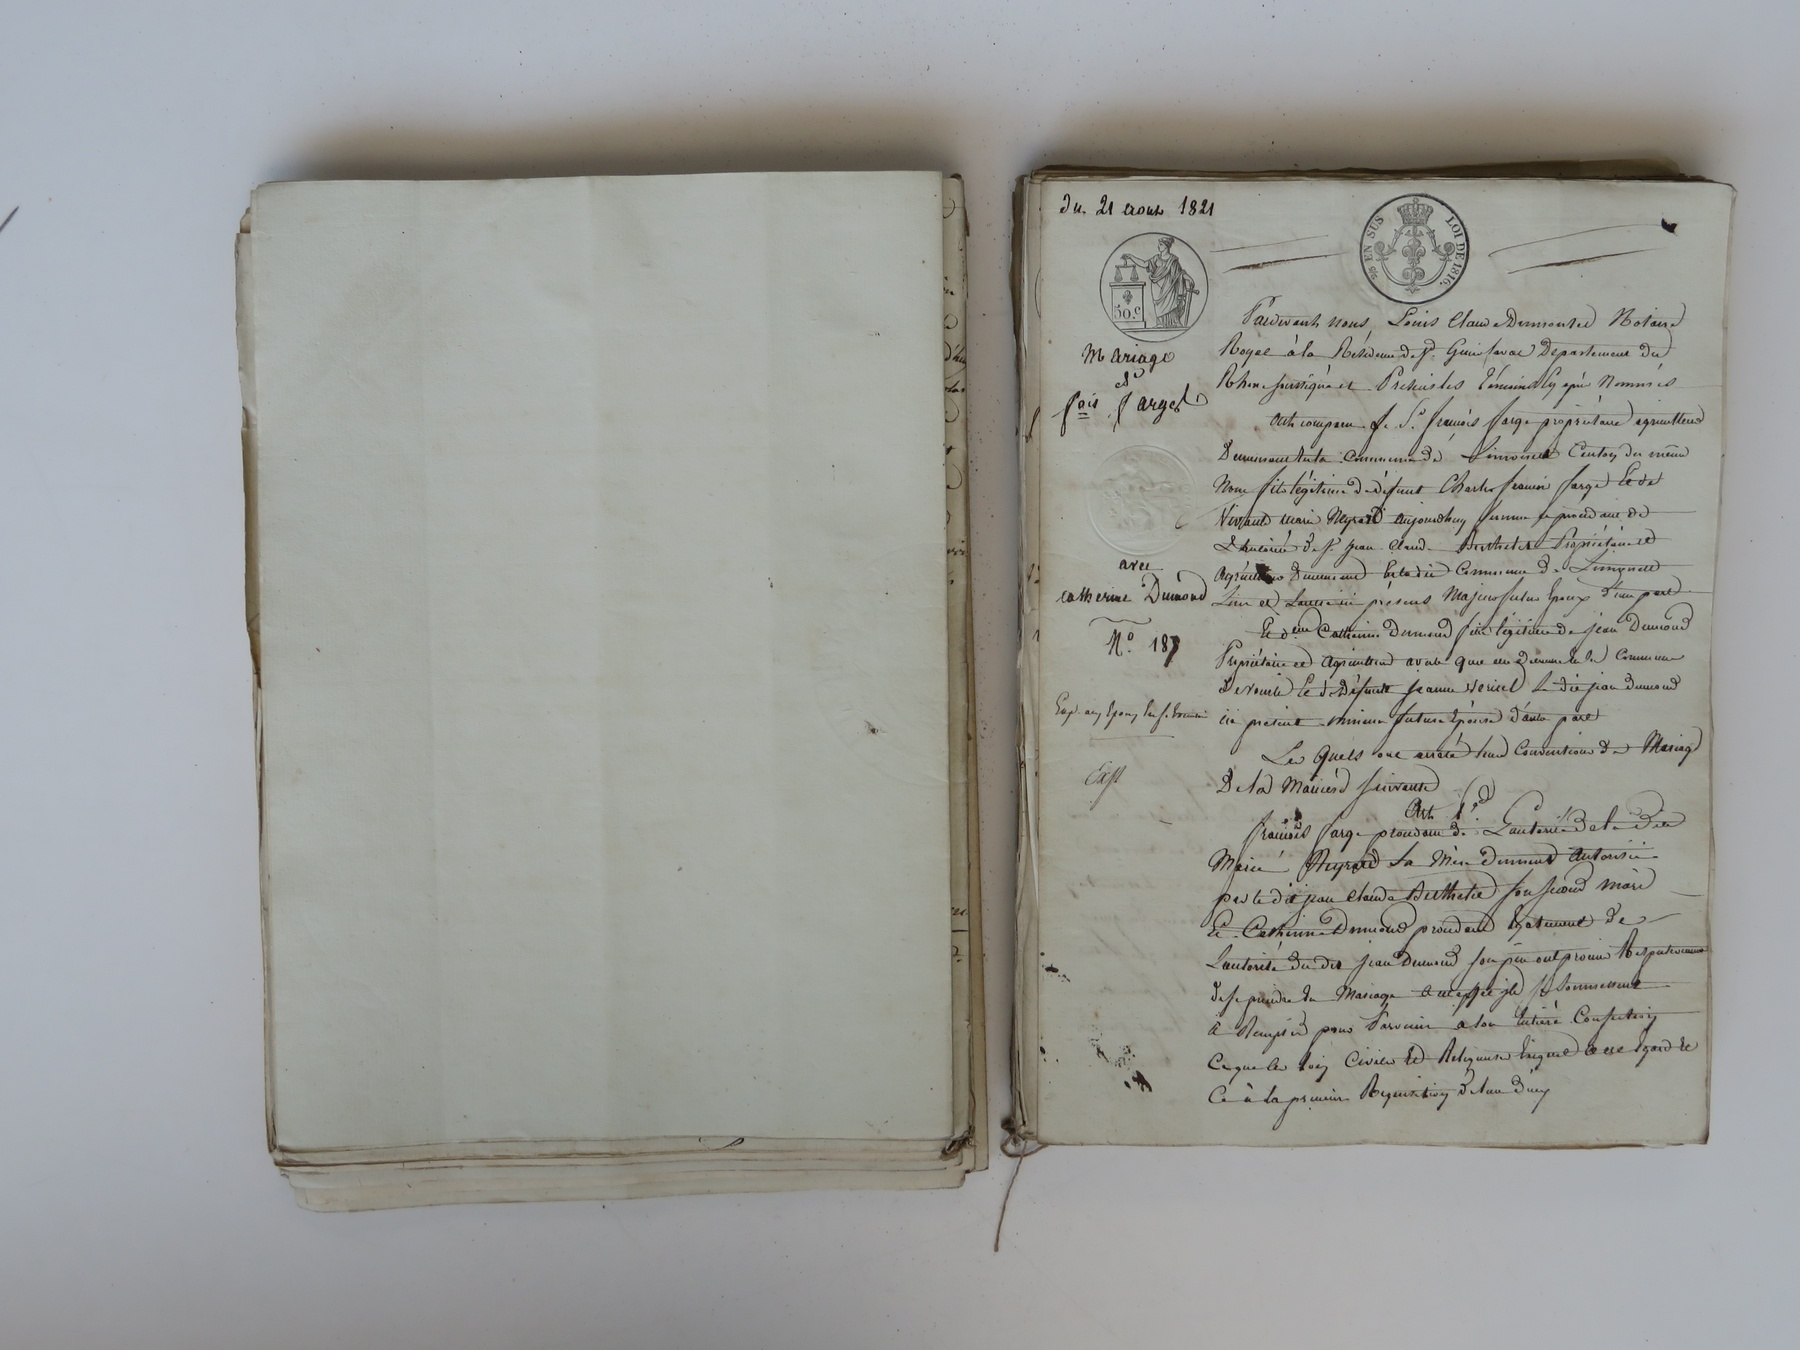 Du 21 aout 1821
98 EN SUS LOI DE 1816.
50.c
Mariage
de
f.ois farge
avec
Catherine Dumond
N.o 187
Exp.
Pardevant nous, Louis Claude Notaire
Royal à la Résidence de S.t Genis Laval Departement du
Rhone soussigné et Presents les témoins cy après Nommés
Ont comparu S.r françois farge propriétaire agriculteur
Demeurant en la Commune de Limonest Canton du même
Nom fils légitime de défunt Charles françois farge Et de
Vivante marie Neyrard aujourdhuy femme procédant de
L'autorité de S.r jean Claude Berthelet Propriétaire et
Agriculteur Demeurant En la dite Commune de Limonest
présens Majeur futur Epoux d'une part
Et d.elle Catherine Dumond fille légitime de jean Dumond
Propriétaire et Agriculteur avec le quel elle Demeure En la Commune
De Et de Défunte jeanne Le dit jean Dumond
ici présent mineure future Epouse d'autre part
Les Quels ont arreté leurs Conventions de Mariage
De la Maniere suivante
Art. 1.er
françois farge procedant de L'autorité de la dite
Marie Neyrard Sa Mère Autorisée
par le dit jean Claude Berthelet son second mari
Et Catherine Dumond procedant Egalement de
L'autorité du dit jean Dumond son père ont promis Respectivement
de se prendre En Mariage a cet effet ils se soumettent
à Remplir pour Parvenir a son Entiere Confection
Ce que les loix Civiles Et Religieuses Exigent à cet Egard Et
Ce à la premiere Requisition de l'un d'eux